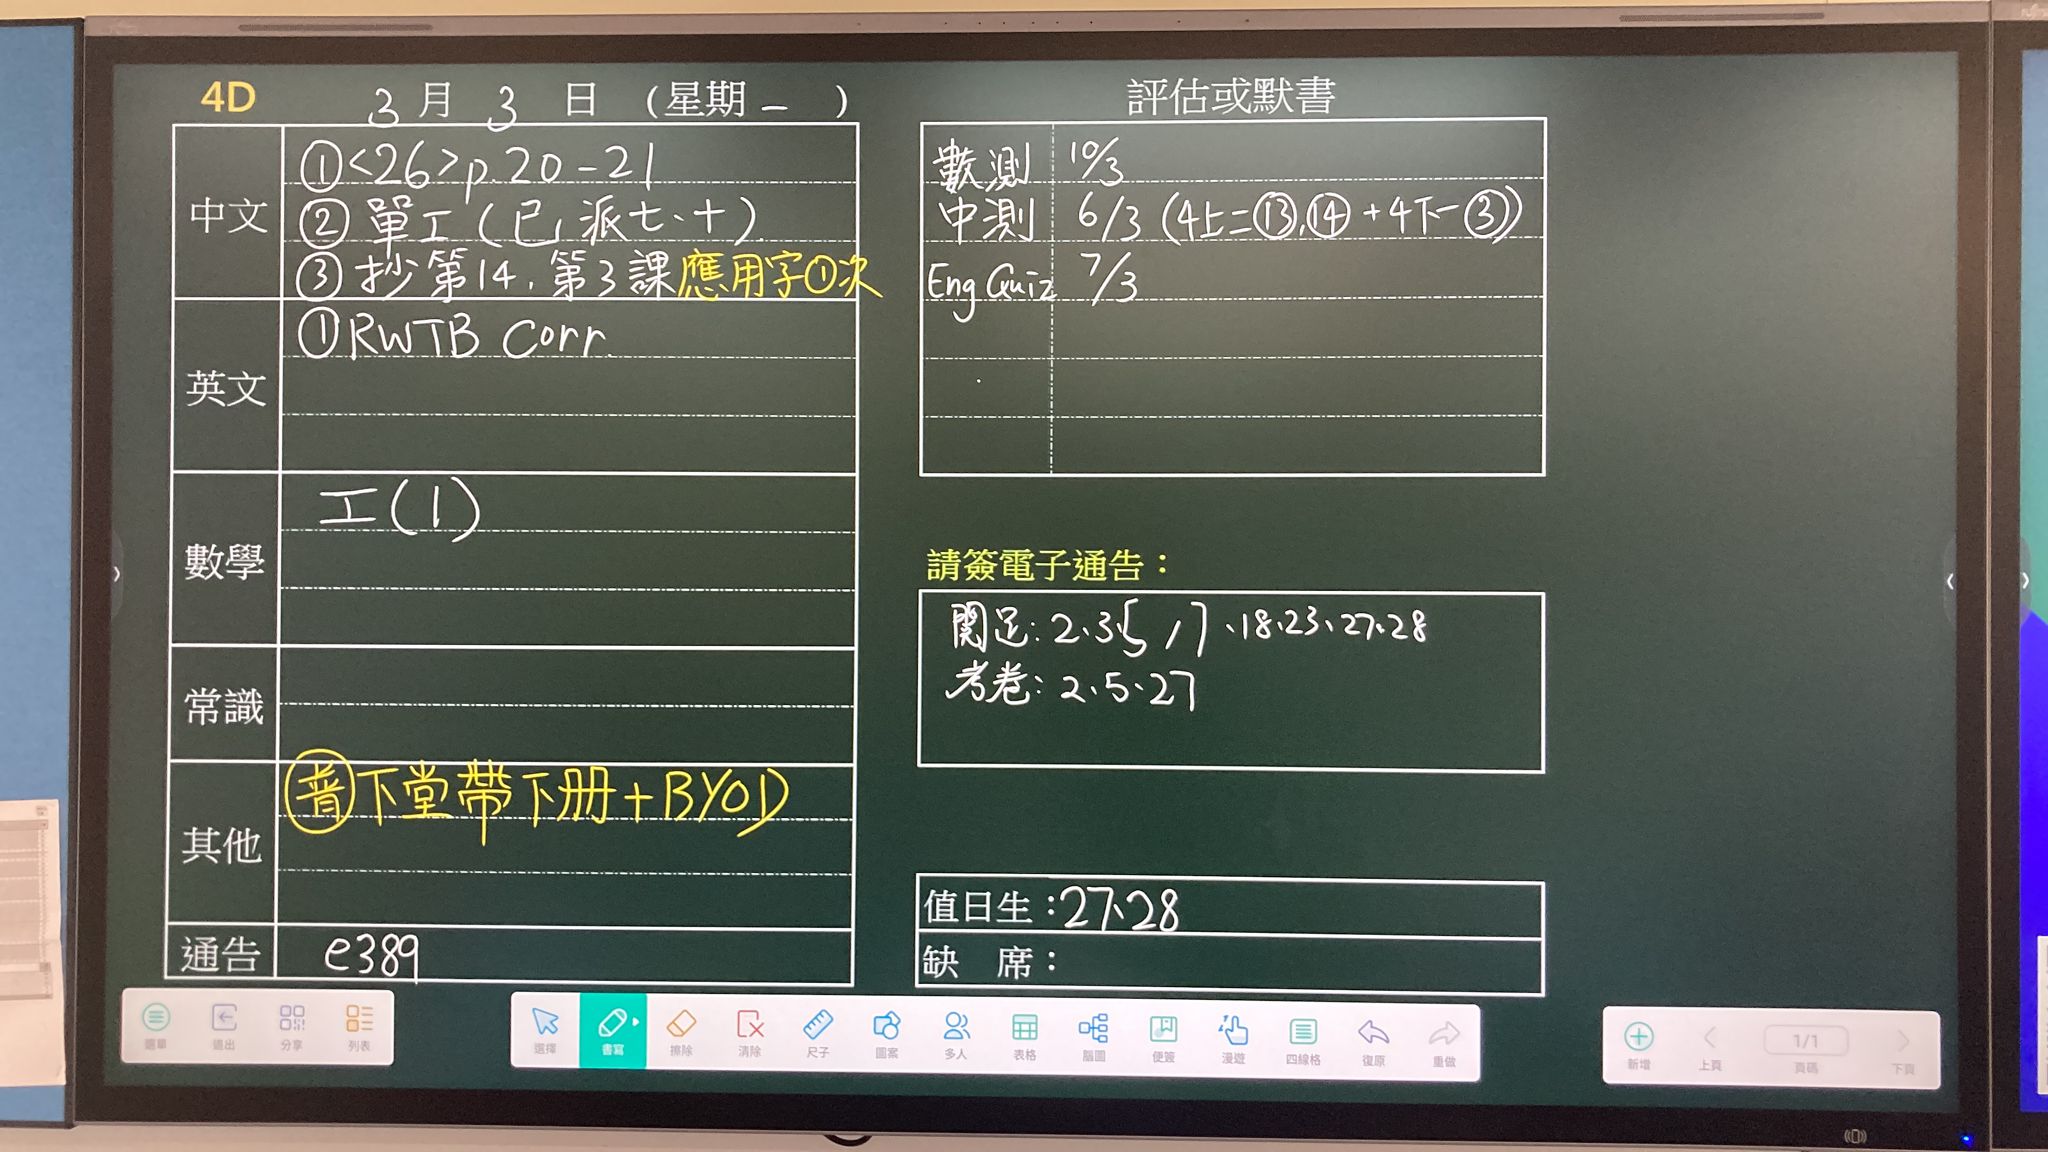 4D 3月3日（星期一）
中文
①<26>p.20-21
②單工(已派七、十)
③抄第14、第3課應用字①次
英文
①RWTB Corr.
數學
工(1)
常識
其他
㊥下堂帶下册+BYOD
通告 e389
評估或默書
數測 10/3
中測 6/3 (4上二⑬,⑭+4下一③)
Eng Quiz 7/3
請簽電子通告：
考卷：2、5、27
值日生：27、28
缺 席：
選單 退出 分享 列表
選擇 書寫 擦除 清除 尺子 圖案 多人 表格 腦圖 便簽 漫遊 四線格 復原 重做
新增 上頁 1/1 頁碼 下頁